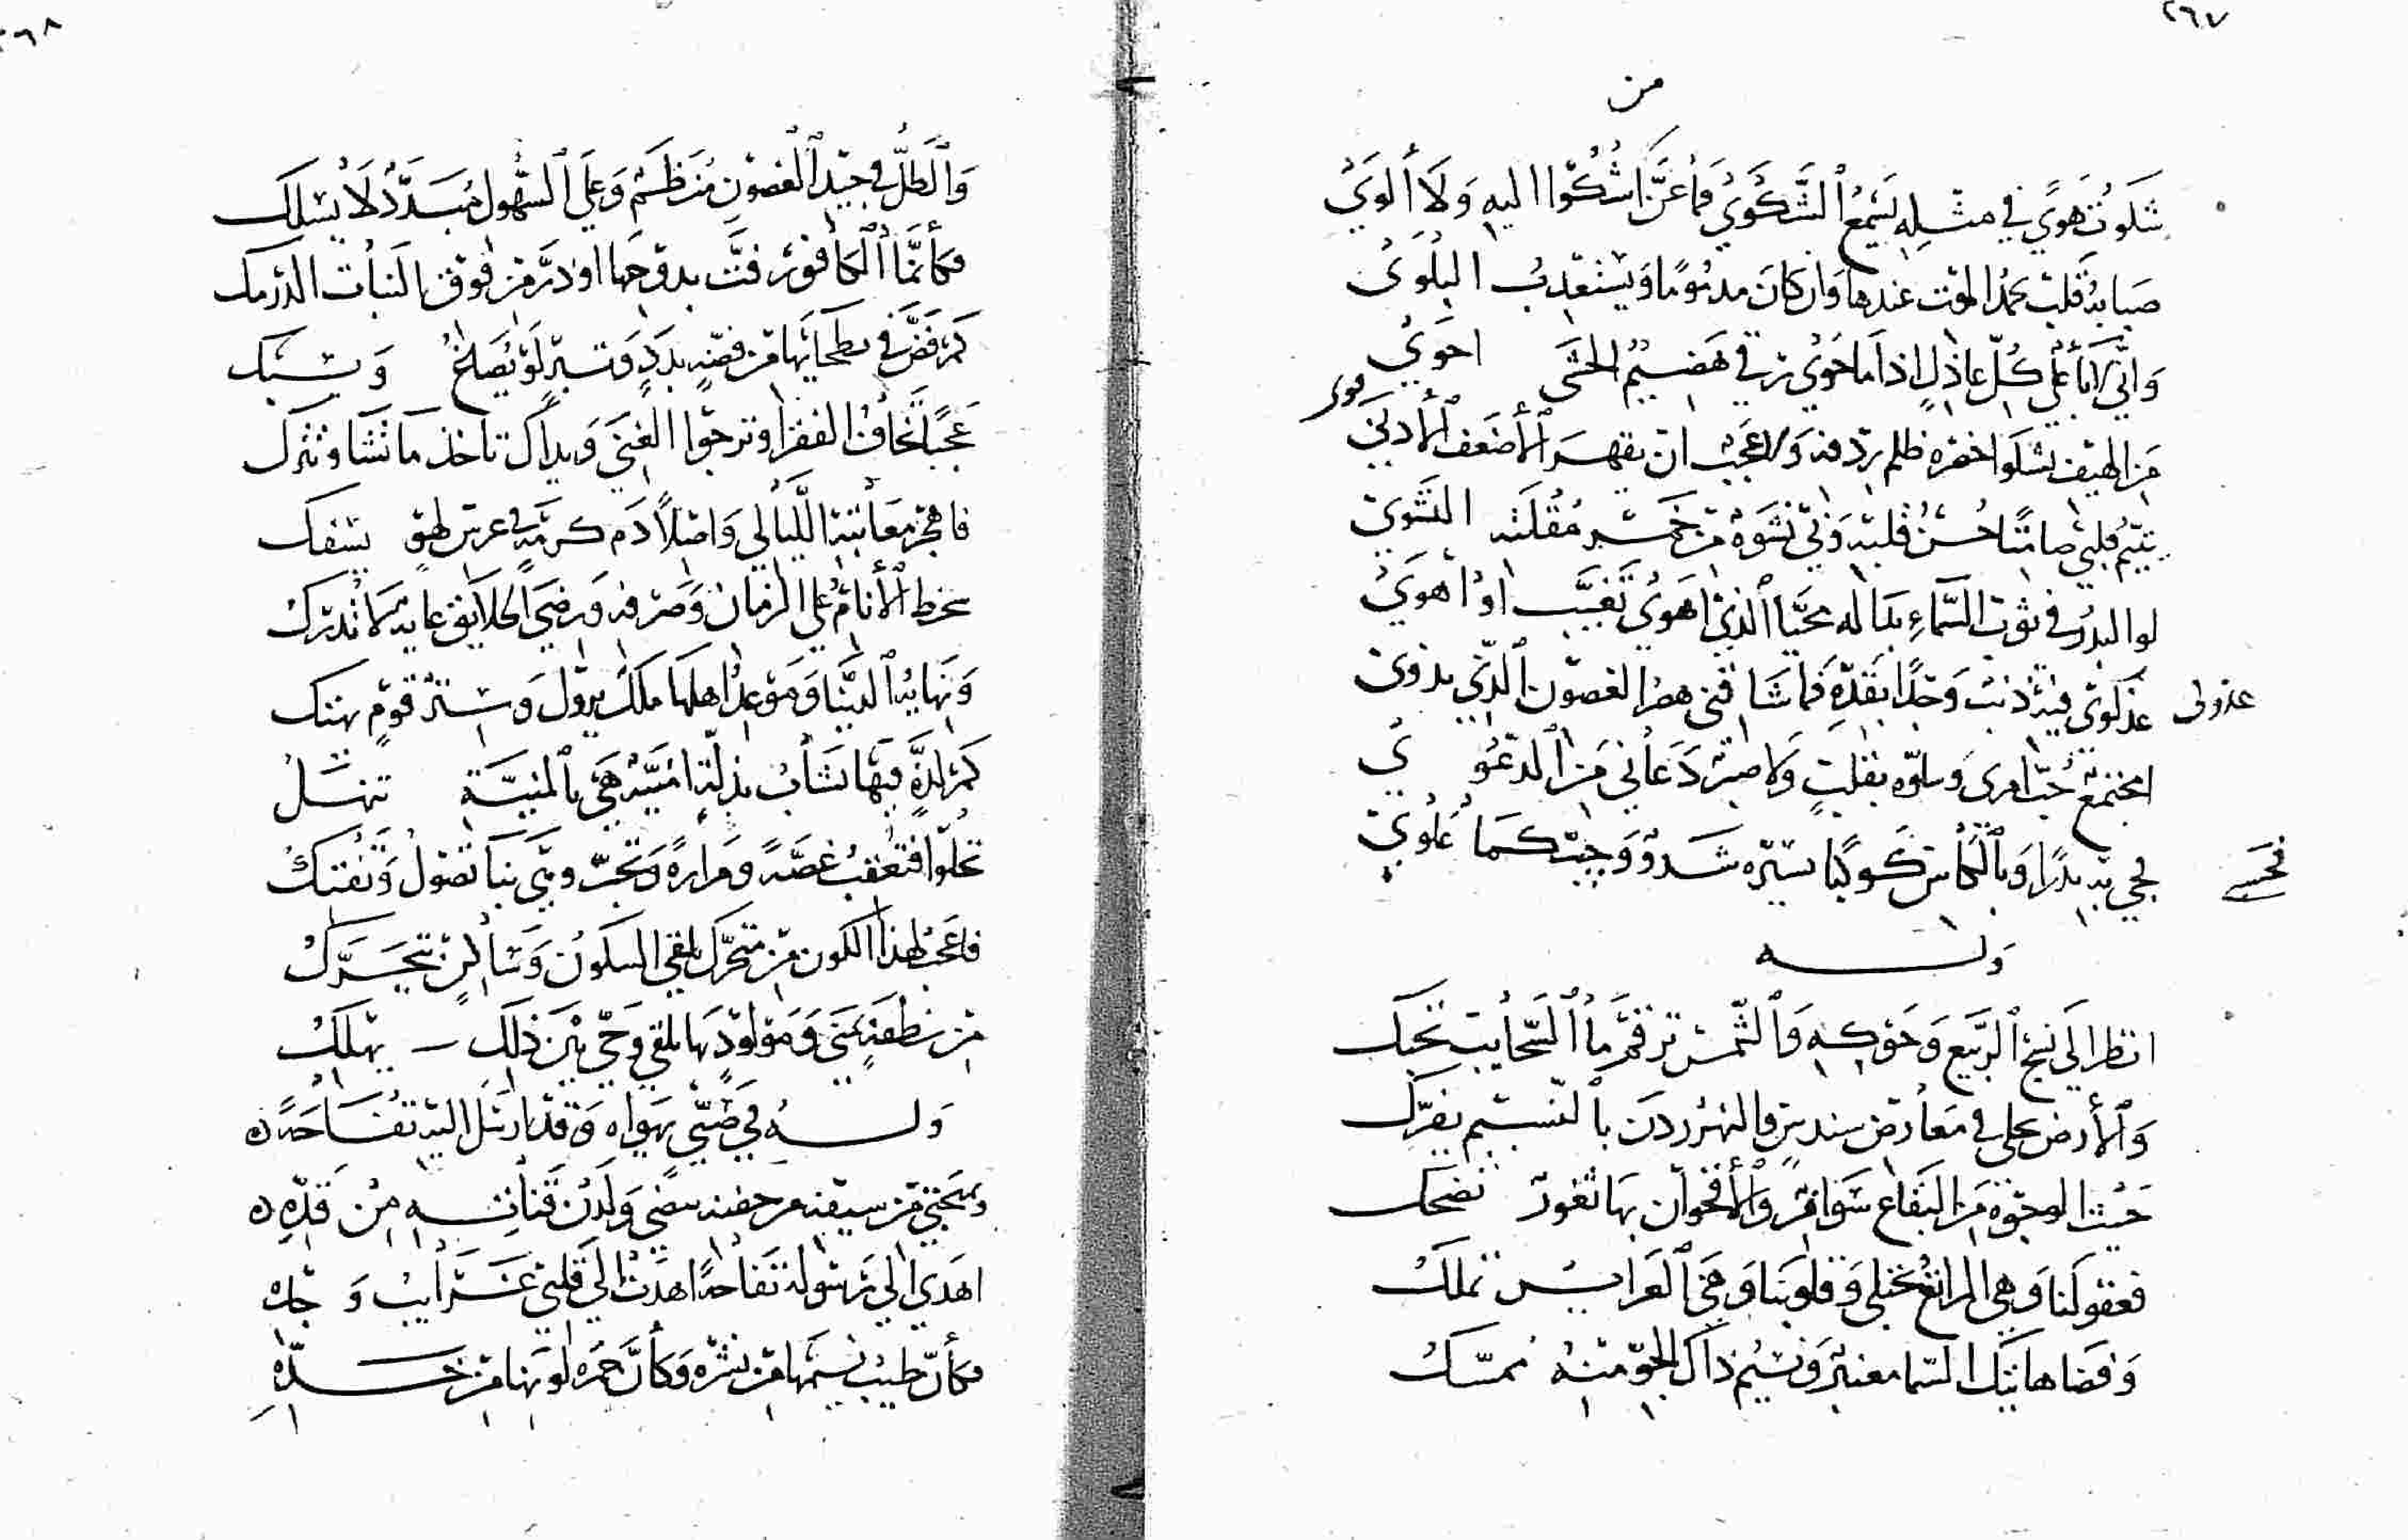 ٢٦٧
من
شكوت هوي في مثله يسمع الشكوي فما عز اشكوا اليه ولا ألوي
صبابة قلب يحمد الموت عندها وان كان مذموما ويستعذب البلوي
واني لاباعلي كل عاذل اذا ما حوي في هضيم الحشى احوي
من الهيف يشكوا خصره ظلم ردفه ولا عجب ان يقهر الأضعف الأ
يتيم قلبي صامتا حسن قلبه وبي نشوة من خمر مقلته النشوي
لو البدر في ثوب السماء بدا له محيا الذي اهوي تغيب او اهوي
عذلوي فيه ذبت وجدا بقده فما شاقني هصر الغصون الذي يذوي
عذولي
امجتمع حب امرى وسلوه بقلب ولا صبر دعاني من الدعوي
فحسبي
به بدرا وبالكأس كوكبا سيره شدو وجيب كما علوي
وله
انظر الي نسج الربيع وحوكه والشمس ترقم ما السحايب تحبك
والأرض تجلى في معارض سندس والنهر ردن بالنسيم يفرك
حيث الوجوه من البقاع سوافر والأقحوان بها ثغور تضحك
فعقولنا وهي المراتع تختلي وقلوبنا وهي العرايس تملك
وفضا هاتيك السما معنبر ونسيم ذاك الجو منه ممسك
٢٦٨
والطل في جيد الغصون منظم وعلي السهول مبدد لا يسلك
فكأنما الكافور فت بدوحها او ذر من فوق النبات الدرمك
كم فض في بطحايها من فضة بدد وتبر لو يصاغ ويسبك
عجبا تخاف الفقر او ترجوا الغني ويداك تاخذ ما تشا وتترك
فاهجر معاتبة الليالي واصلا دم كرمة في عرس لهو يسفك
سخط الأنام علي الزمان وصرفه ورضي الخلايق غاية لا تدرك
ونهاية الدنيا وموعد اهلها ملك يزول وستر قوم يهتك
كم لذة فيها تشاب بذلة امنية هي بالمنية تنهك
تحلوا فتعقب غصة ومرارة وتحب وهي بنا تصول وتفتك
فاعجب لهذا الكون من متحرك يلقي السكون وساكن يتحرك
من نطفة يمني ومولود بها يلقي وحي بين ذلك يهلك
وله في صبي يهواه وقد ارسل اليه تفاحة
وبمهجتي من سيفه من جفنه يمضي ولدن قناته من قده
اهدي الي رسوله تفاحة اهدت الي قلبي غرايب وجده
فكأن طيب نسيمها من نشره وكأن حمرة لونها من خده